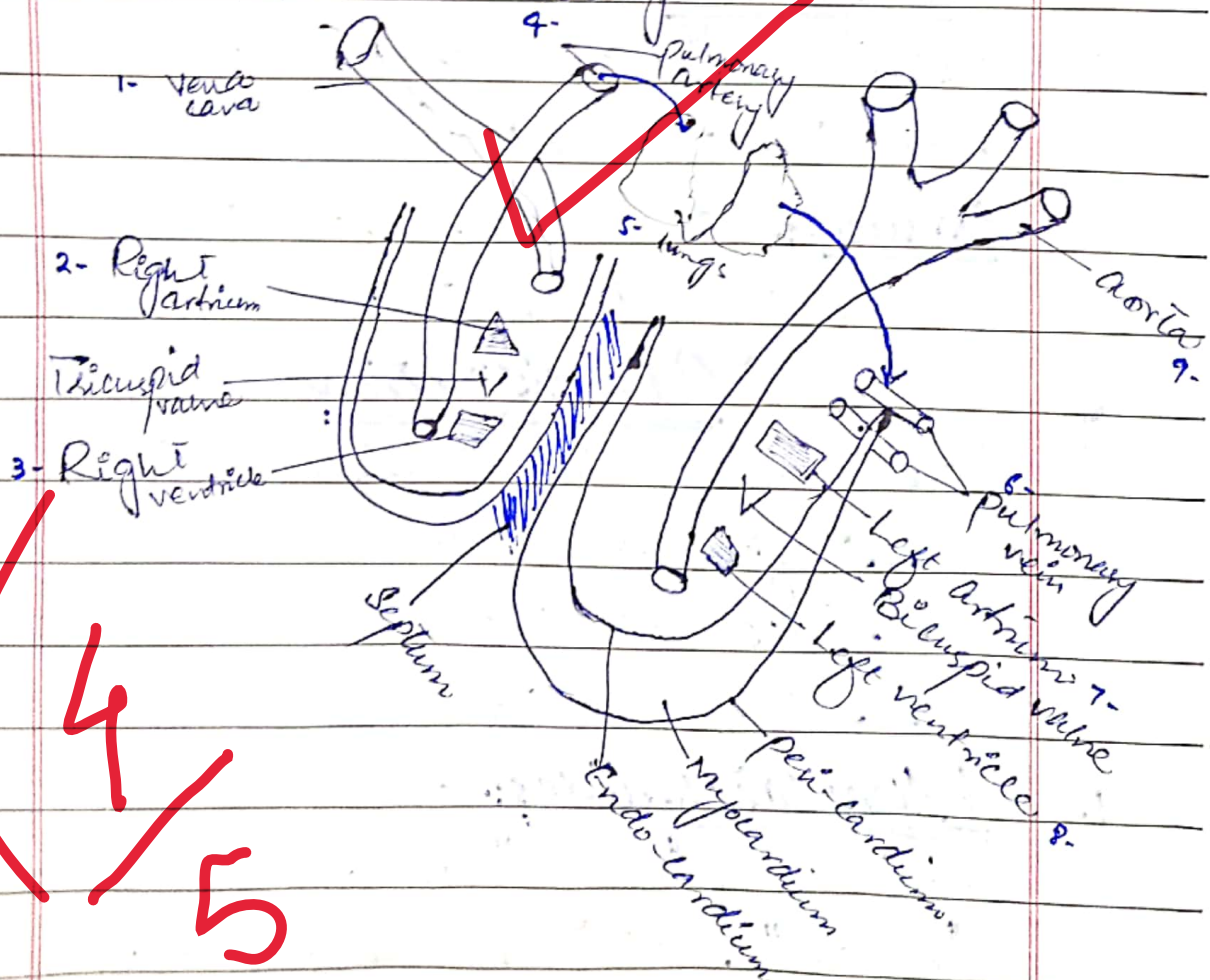 4-
pulmonary
artery
1- Vena
cava
5- lungs
2- Right
artrium
Aorta
9-
Tricuspid
valve
3- Right
ventricle
6-
pulmonary
vein
Left artrium
7-
Bicuspid valve
Left ventricle
8-
Septum
Peri-cardium.
Myocardium
Endo-cardium
4
5